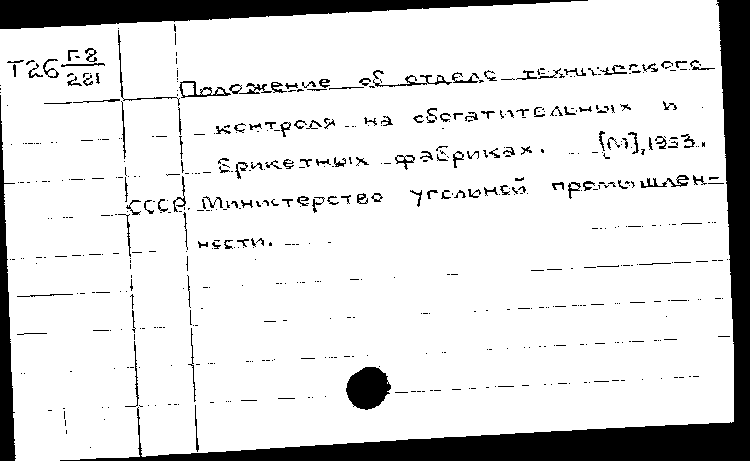 Т26 Г-8/281
Положение об отделе технического
контроля на обогатительных и
брикетных фабриках. [М], 1953.
СССР. Министерство угольной промышлен-
ности.